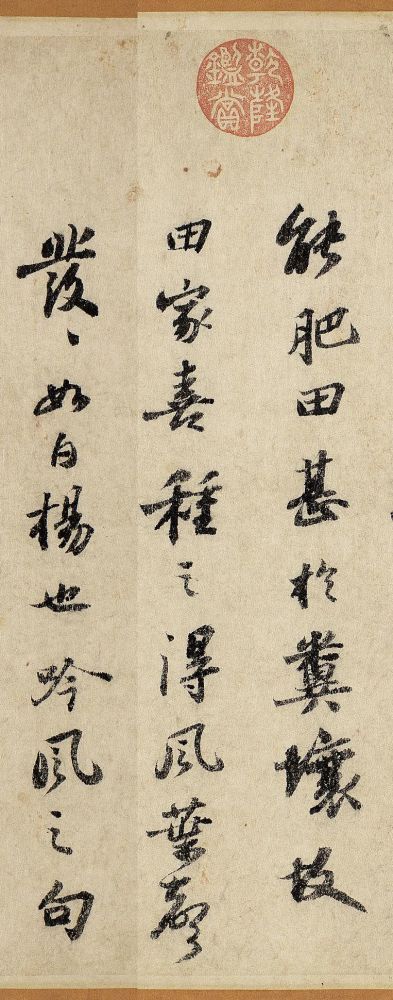 乾隆鑑賞
能肥田甚於糞壤故
田家喜種之得風葉聲
發〻如白楊也吟風之句